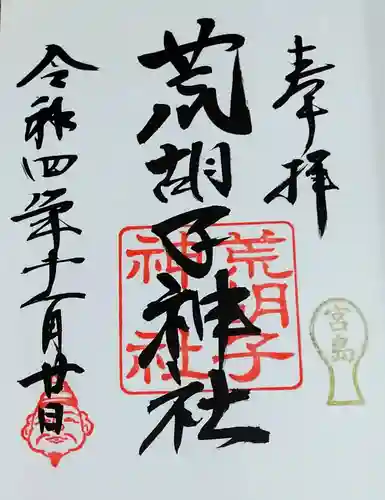 奉拝
荒胡子神社
令和四年十一月廿日
荒胡子
神社
宮島